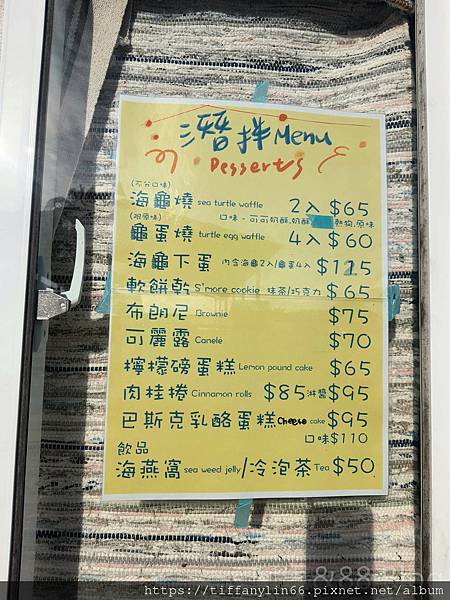 潛拌Menu
Desserts
(不分口味)
海龜燒 sea turtle waffle 2入 $65
(限原味) 口味-可可奶酥.奶酥 熱狗.原味
龜蛋燒 turtle egg waffle 4入 $60
海龜下蛋 內含海龜2入/龜蛋4入 $115
軟餅乾 S'more cookie 抹茶/巧克力 $65
布朗尼 Brownie $75
可麗露 Canelé $70
檸檬磅蛋糕 Lemon pound cake $65
肉桂捲 Cinnamon rolls $85 淋醬 $95
巴斯克乳酪蛋糕 Cheese cake $95
口味$110
飲品
海燕窩 sea weed jelly/冷泡茶 Tea $50
https://tiffanylin66.pixnet.net/album